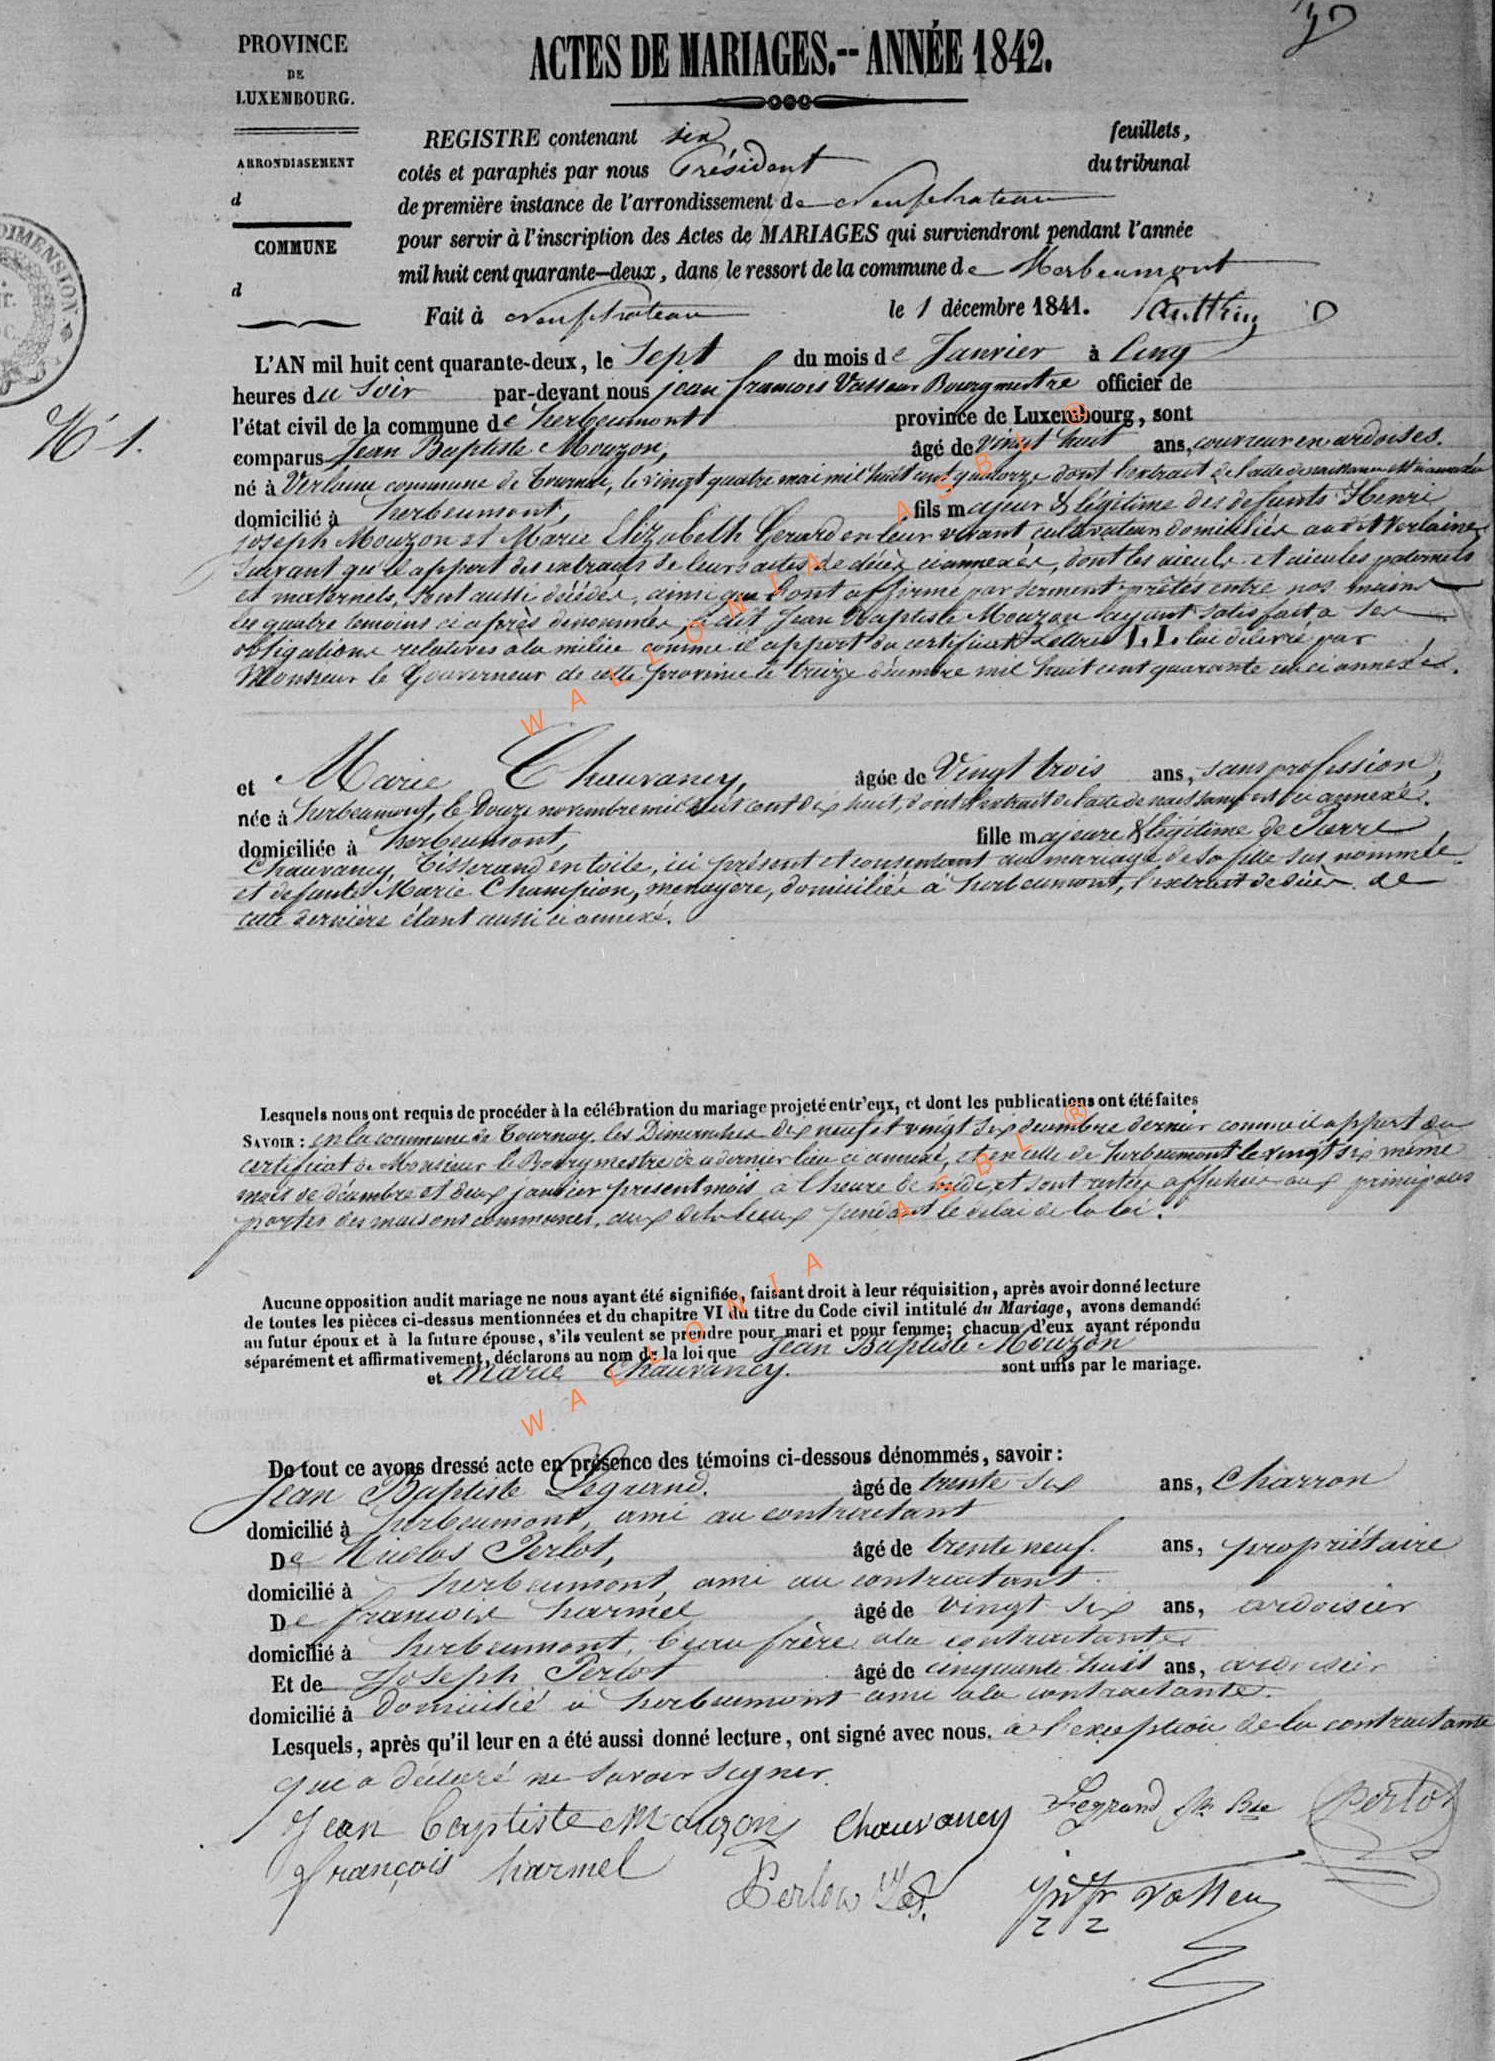 PROVINCE
DE
LUXEMBOURG.
ARRONDISSEMENT
d
COMMUNE
d
DIMENSION
ACTES DE MARIAGES.-- ANNÉE 1842.
REGISTRE contenant six feuillets,
cotés et paraphés par nous Président du tribunal
de première instance de l'arrondissement de Neufchateau
pour servir à l'inscription des Actes de MARIAGES qui surviendront pendant l'année
mil huit cent quarante-deux, dans le ressort de la commune de Herbeumont
Fait à Neufchateau le 1 décembre 1841.
N° 1.
L'AN mil huit cent quarante-deux, le Sept du mois de Janvier à Cinq
heures du Soir par-devant nous jean francois Vasseur Bourgmestre officier de
l'état civil de la commune de herbeumont province de Luxembourg, sont
comparus Jean Baptiste Mouzon, âgé de vingt huit ans, couvreur en ardoises.
né à Verlaine commune de Tournai, le vingt quatre mai mil huit cent quatorze dont l'extrait de l'acte de naissance est ci annexé
domicilié à herbeumont, fils majeur & légitime des defunts Henri
joseph Mouzon et Marie Elizabeth Gerard en leur vivant cultivateurs domiciliés au dit Verlaine
suivant qu'il appert des extraits de leurs actes de décès ci annexés, dont les aieuls et aieules paternels
et maternels, sont aussi décédés, ainsi que l'ont affirmé par serment prêtés entre nos mains
les quatre temoins ci après dénommés, le dit Jean Baptiste Mouzon ayant satisfait a ses
obligations relatives a la milice comme il appert du certificat Lettres I, I. lui délivré par
Monsieur le Gouverneur de cette province le treize décembre mil huit cent quarante un ci annexés.
et Marie Chauvancy, âgée de Vingt trois ans, sans profession,
née à herbeumont, le Douze novembre mil huit cent dix huit, dont l'extrait de l'acte de naissance est ci annexé.
domiciliée à herbeumont, fille majeure & légitime de Pierre
Chauvancy, Tisserand en toile, ici présent et consentant au mariage de sa fille sus nommée
et defunte Marie Champion, menagere, domiciliés à herbeumont, l'extrait de décès de
cette dernière étant aussi ci annexé.
Lesquels nous ont requis de procéder à la célébration du mariage projeté entr'eux, et dont les publications ont été faites
SAVOIR : en la commune de Tournay les Dimanches dix neuf et vingt six decembre dernier comme il appert du
certificat de Monsieur le Bourgmestre de ce dernier lieu ci annexé, et en celle de herbeumont le vingt six même
mois de décembre et deux janvier present mois à l'heure de midi, et sont restées affichées aux principales
portes des maisons communes, aux dits lieux pendant le delai de la loi.
Aucune opposition audit mariage ne nous ayant été signifiée, faisant droit à leur réquisition, après avoir donné lecture
de toutes les pièces ci-dessus mentionnées et du chapitre VI du titre du Code civil intitulé du Mariage, avons demandé
au futur époux et à la future épouse, s'ils veulent se prendre pour mari et pour femme; chacun d'eux ayant répondu
séparément et affirmativement, déclarons au nom de la loi que Jean Baptiste Mouzon
et Marie Chauvancy. sont unis par le mariage.
De tout ce avons dressé acte en présence des témoins ci-dessous dénommés, savoir :
Jean Baptiste Legrand. âgé de trente six ans, Charron
domicilié à herbeumont, ami au contractant
De Nicolas Perlot, âgé de trente neuf. ans, propriétaire
domicilié à herbeumont, ami au contractant.
De francois harmel âgé de vingt six ans, ardoisier
domicilié à herbeumont, beau frère a la contractante
Et de Joseph Perlot âgé de cinquante huit ans, ardoisier
domicilié à Domicilié à herbeumont ami a la contractante.
Lesquels, après qu'il leur en a été aussi donné lecture, ont signé avec nous. à l'exception de la contractante
qui a déclaré ne savoir signer.
Jean baptiste Mouzon Chauvancy Legrand Jn Bte Perlot
françois harmel Perlot Jos. Jn Fr Vasseur
WALLONIA ASBL ®
WALLONIA ASBL ®